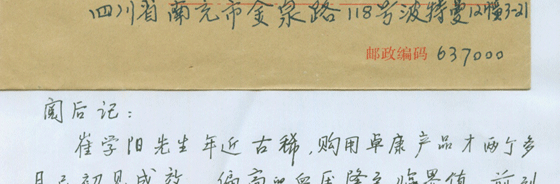 四川省南充市金泉路118号波特曼12幢3-21
邮政编码 637000
阅后记：
崔学阳先生年近古稀，购用卓康产品才两个多
月已初见成效，偏高的血压降之临界值，前列